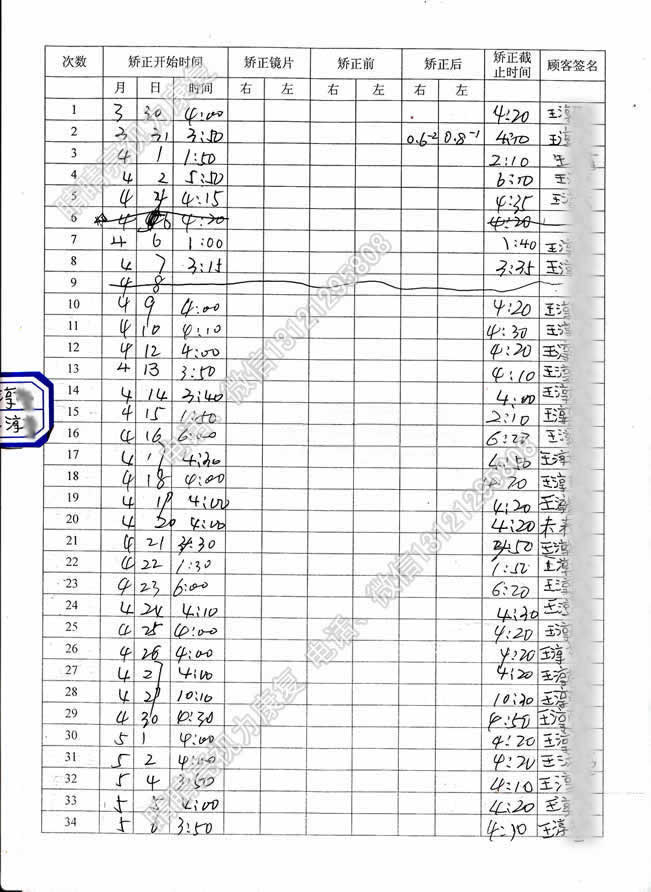 次数 矫正开始时间 矫正镜片 矫正前 矫正后 矫正截止时间 顾客签名
月 日 时间 右 左 右 左 右 左
1 3 30 4:00 4:20 王淳
2 3 31 3:50 0.6-2 0.8-1 4:10 王淳
3 4 1 1:50 2:10
4 4 2 5:50 6:10 王淳
5 4 4 4:15 4:35 王淳
6 4 4:20 4:20
7 4 6 1:00 1:40 王淳
8 4 7 3:15 3:35 王淳
9 4 8
10 4 9 4:00 4:20 王淳
11 4 10 4:10 4:30 王淳
12 4 12 4:00 4:20 王淳
13 4 13 3:50 4:10 王淳
14 4 14 3:40 4:00 王淳
15 4 15 1:50 2:10 王淳
16 4 16 6:00 6:20 王淳
17 4 17 4:30 4:50 王淳
18 4 18 4:00 4:20 王淳
19 4 19 4:00 4:20 王淳
20 4 20 4:00 4:20 未来
21 4 21 3:30 3:50 王淳
22 4 22 1:30 1:50 王淳
23 4 23 6:00 6:20 王淳
24 4 24 4:10 4:30 王淳
25 4 25 4:00 4:20 王淳
26 4 26 4:00 4:20 王淳
27 4 27 4:00 4:20 王淳
28 4 10:10 10:30 王淳
29 4 30 4:30 4:50 王淳
30 5 1 4:00 4:20 王淳
31 5 2 4:00 4:20 王
32 5 4 3:50 4:10 王淳
33 5 5 4:00 4:20 王淳
34 5 6 3:50 4:30 王淳
淳
淳
睛睛亮视力康复 电话、微信13121295808
睛睛亮视力康复 电话、微信13121295808